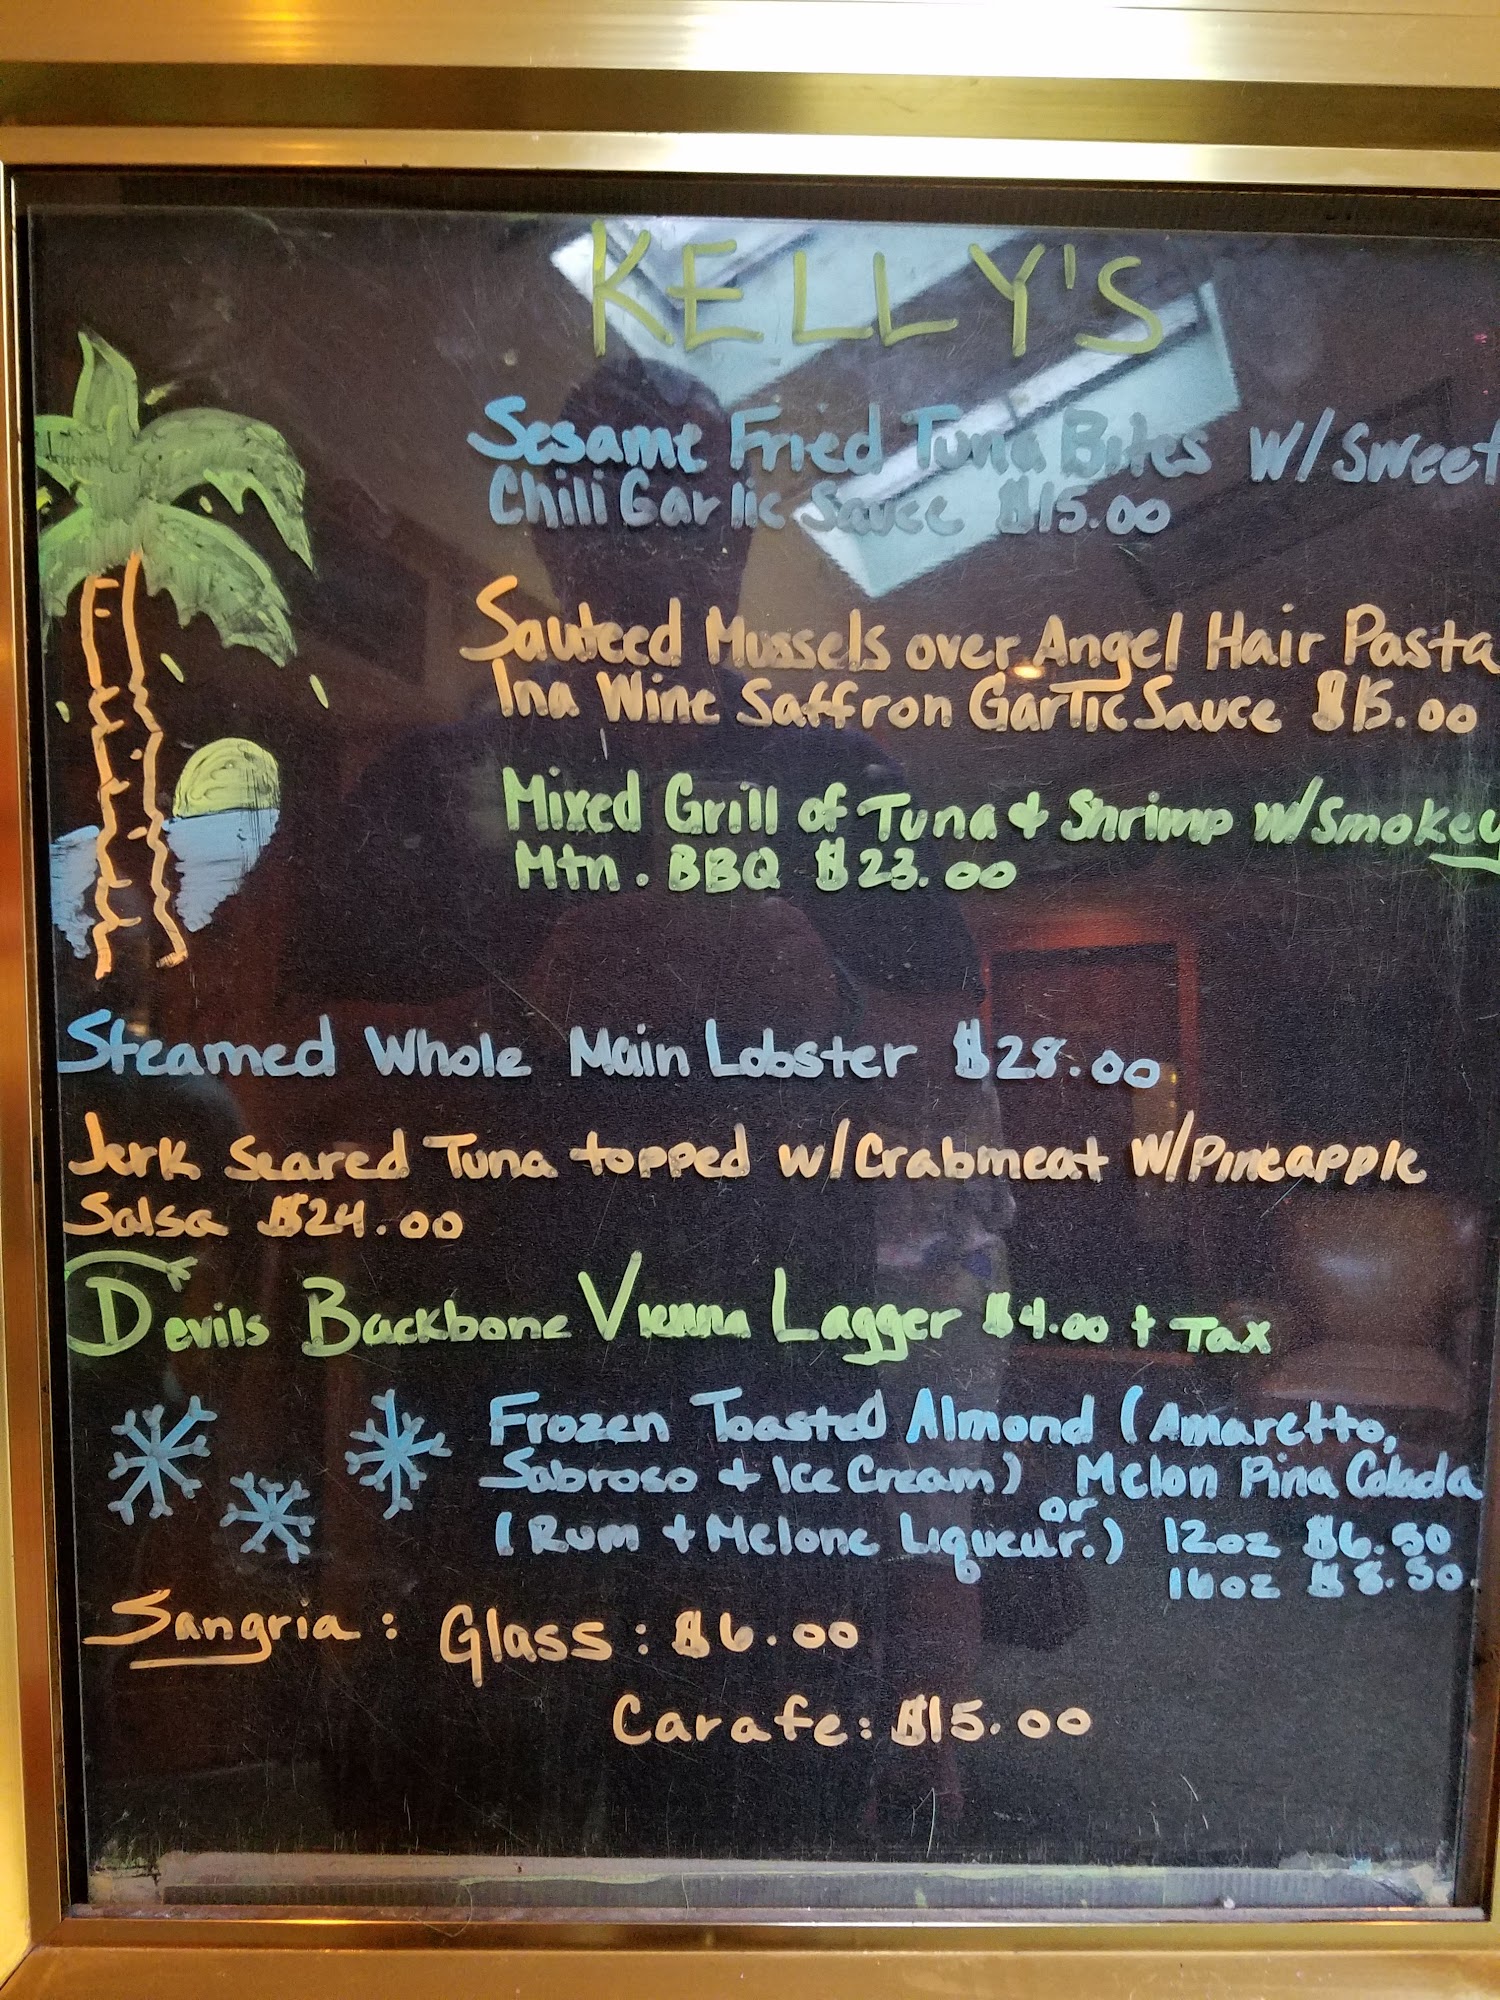 KELLY'S
Sesame Fried Tuna Bites W/ Sweet
Chili Garlic Sauce $15.00
Sauteed Mussels over Angel Hair Pasta
In a Wine Saffron Garlic Sauce $15.00
Mixed Grill of Tuna & Shrimp W/ Smokey
Mtn. BBQ $23.00
Steamed Whole Main Lobster $28.00
Jerk Seared Tuna topped w/ Crabmeat W/ Pineapple
Salsa $24.00
Devils Backbone Vienna Lagger $4.00 + Tax
Frozen Toasted Almond (Amaretto,
Sabroso + Ice Cream) or Melon Pina Colada
(Rum + Melone Liqueur.) 12oz $6.50
16oz $8.50
Sangria: Glass: $6.00
Carafe: $15.00